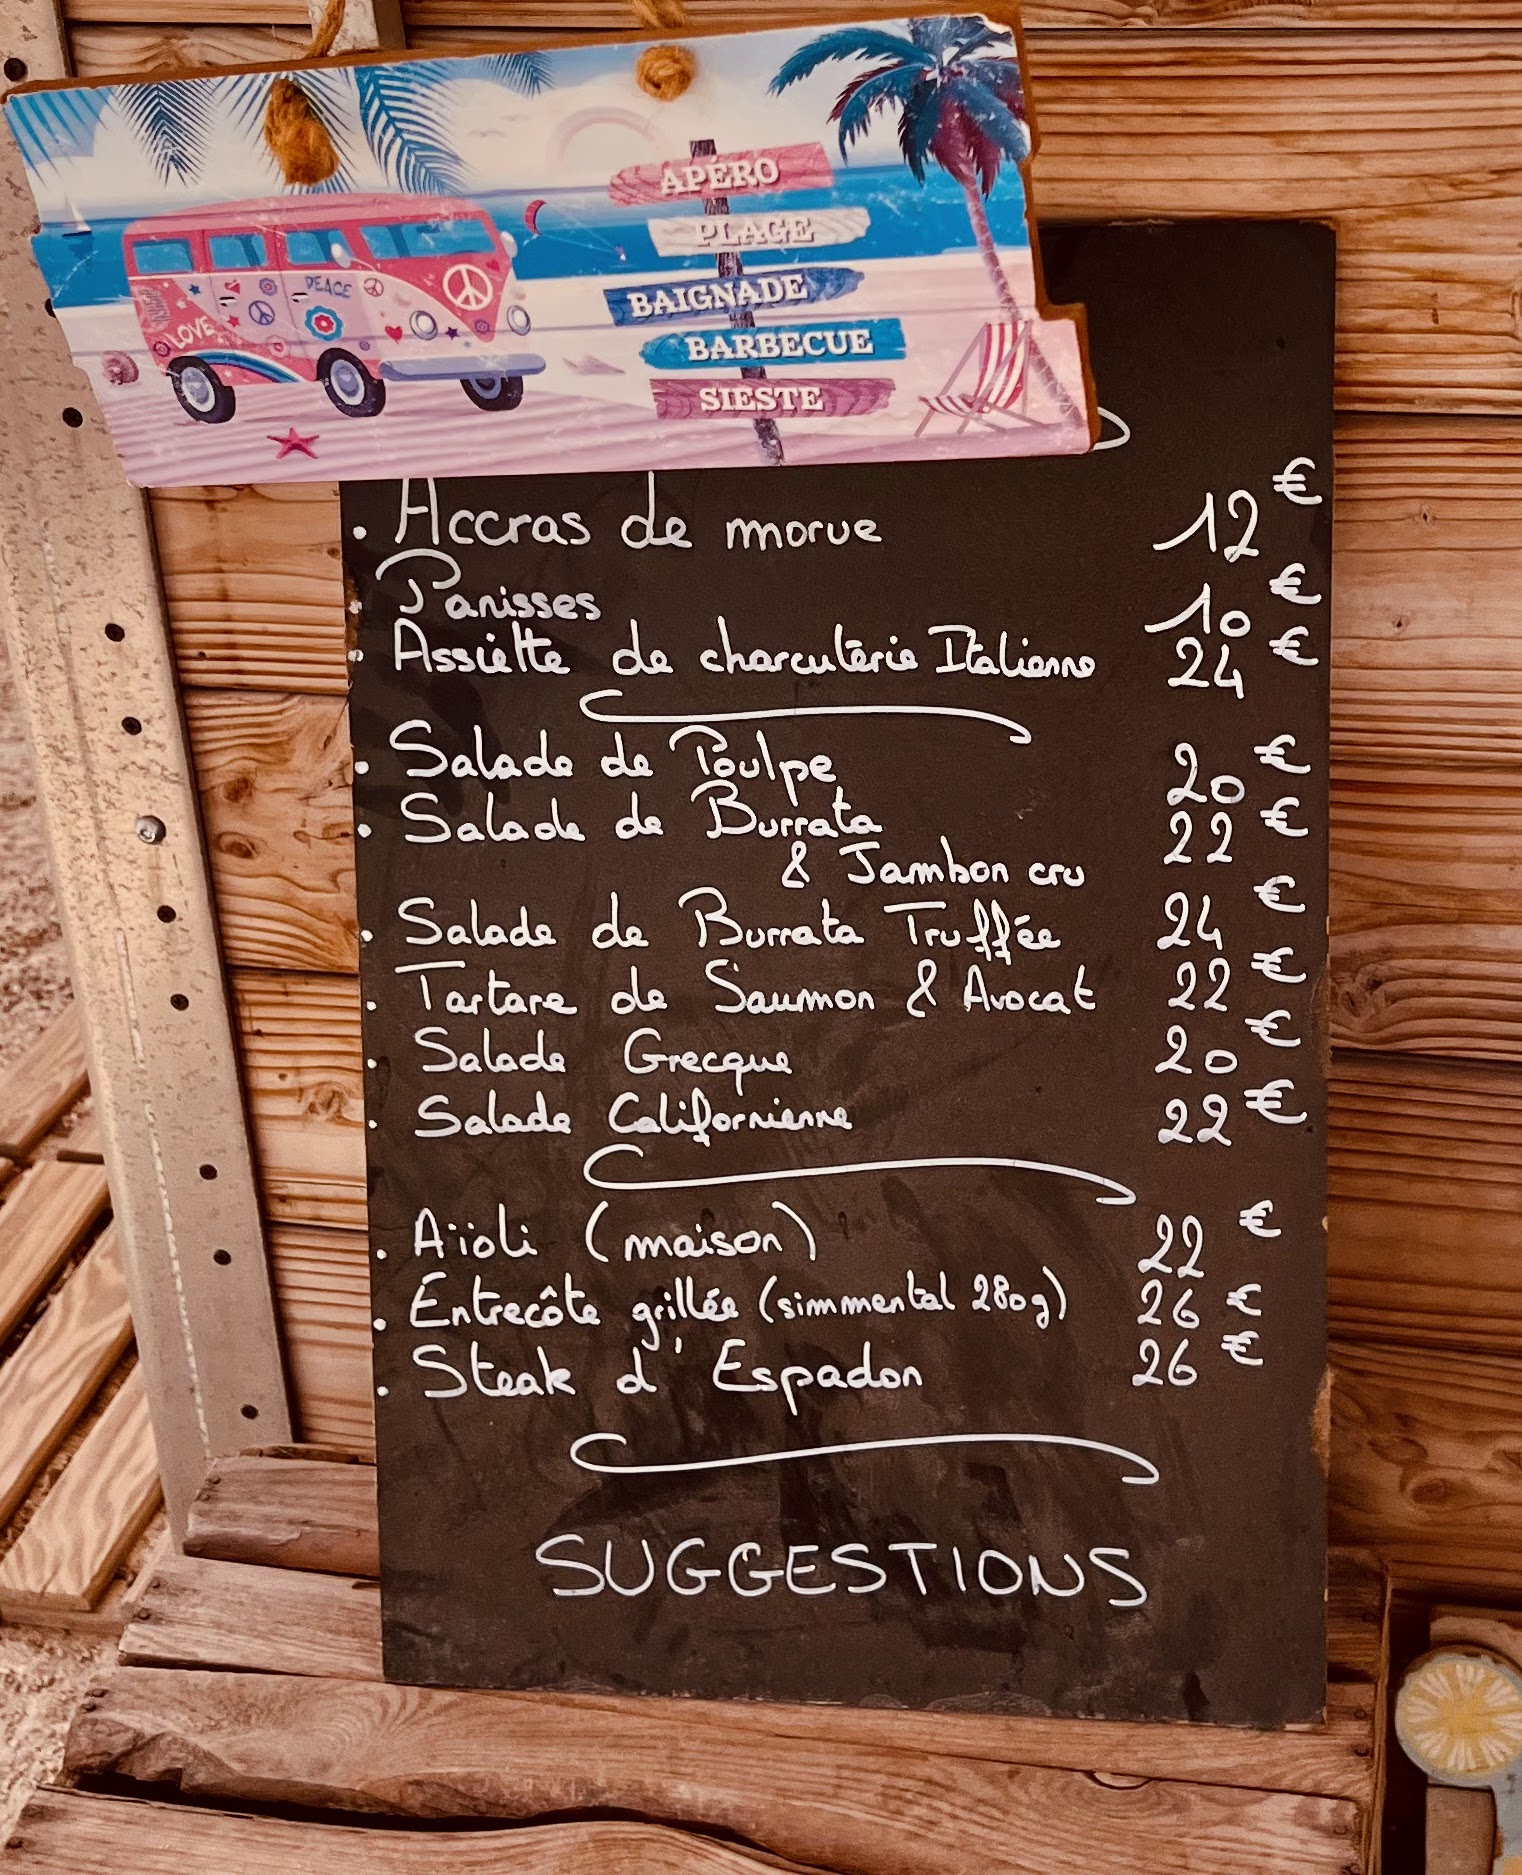 APÉRO
PLAGE
BAIGNADE
BARBECUE
SIESTE
PEACE
LOVE
• Accras de morue 12€
• Panisses 10€
• Assiette de charcuterie Italienne 24€
• Salade de Poulpe 20€
• Salade de Burrata 22€
& Jambon cru
• Salade de Burrata Truffée 24€
• Tartare de Saumon & Avocat 22€
• Salade Grecque 20€
• Salade Californienne 22€
• Aïoli (maison) 22€
• Entrecôte grillée (simmental 280g) 26€
• Steak d'Espadon 26€
SUGGESTIONS